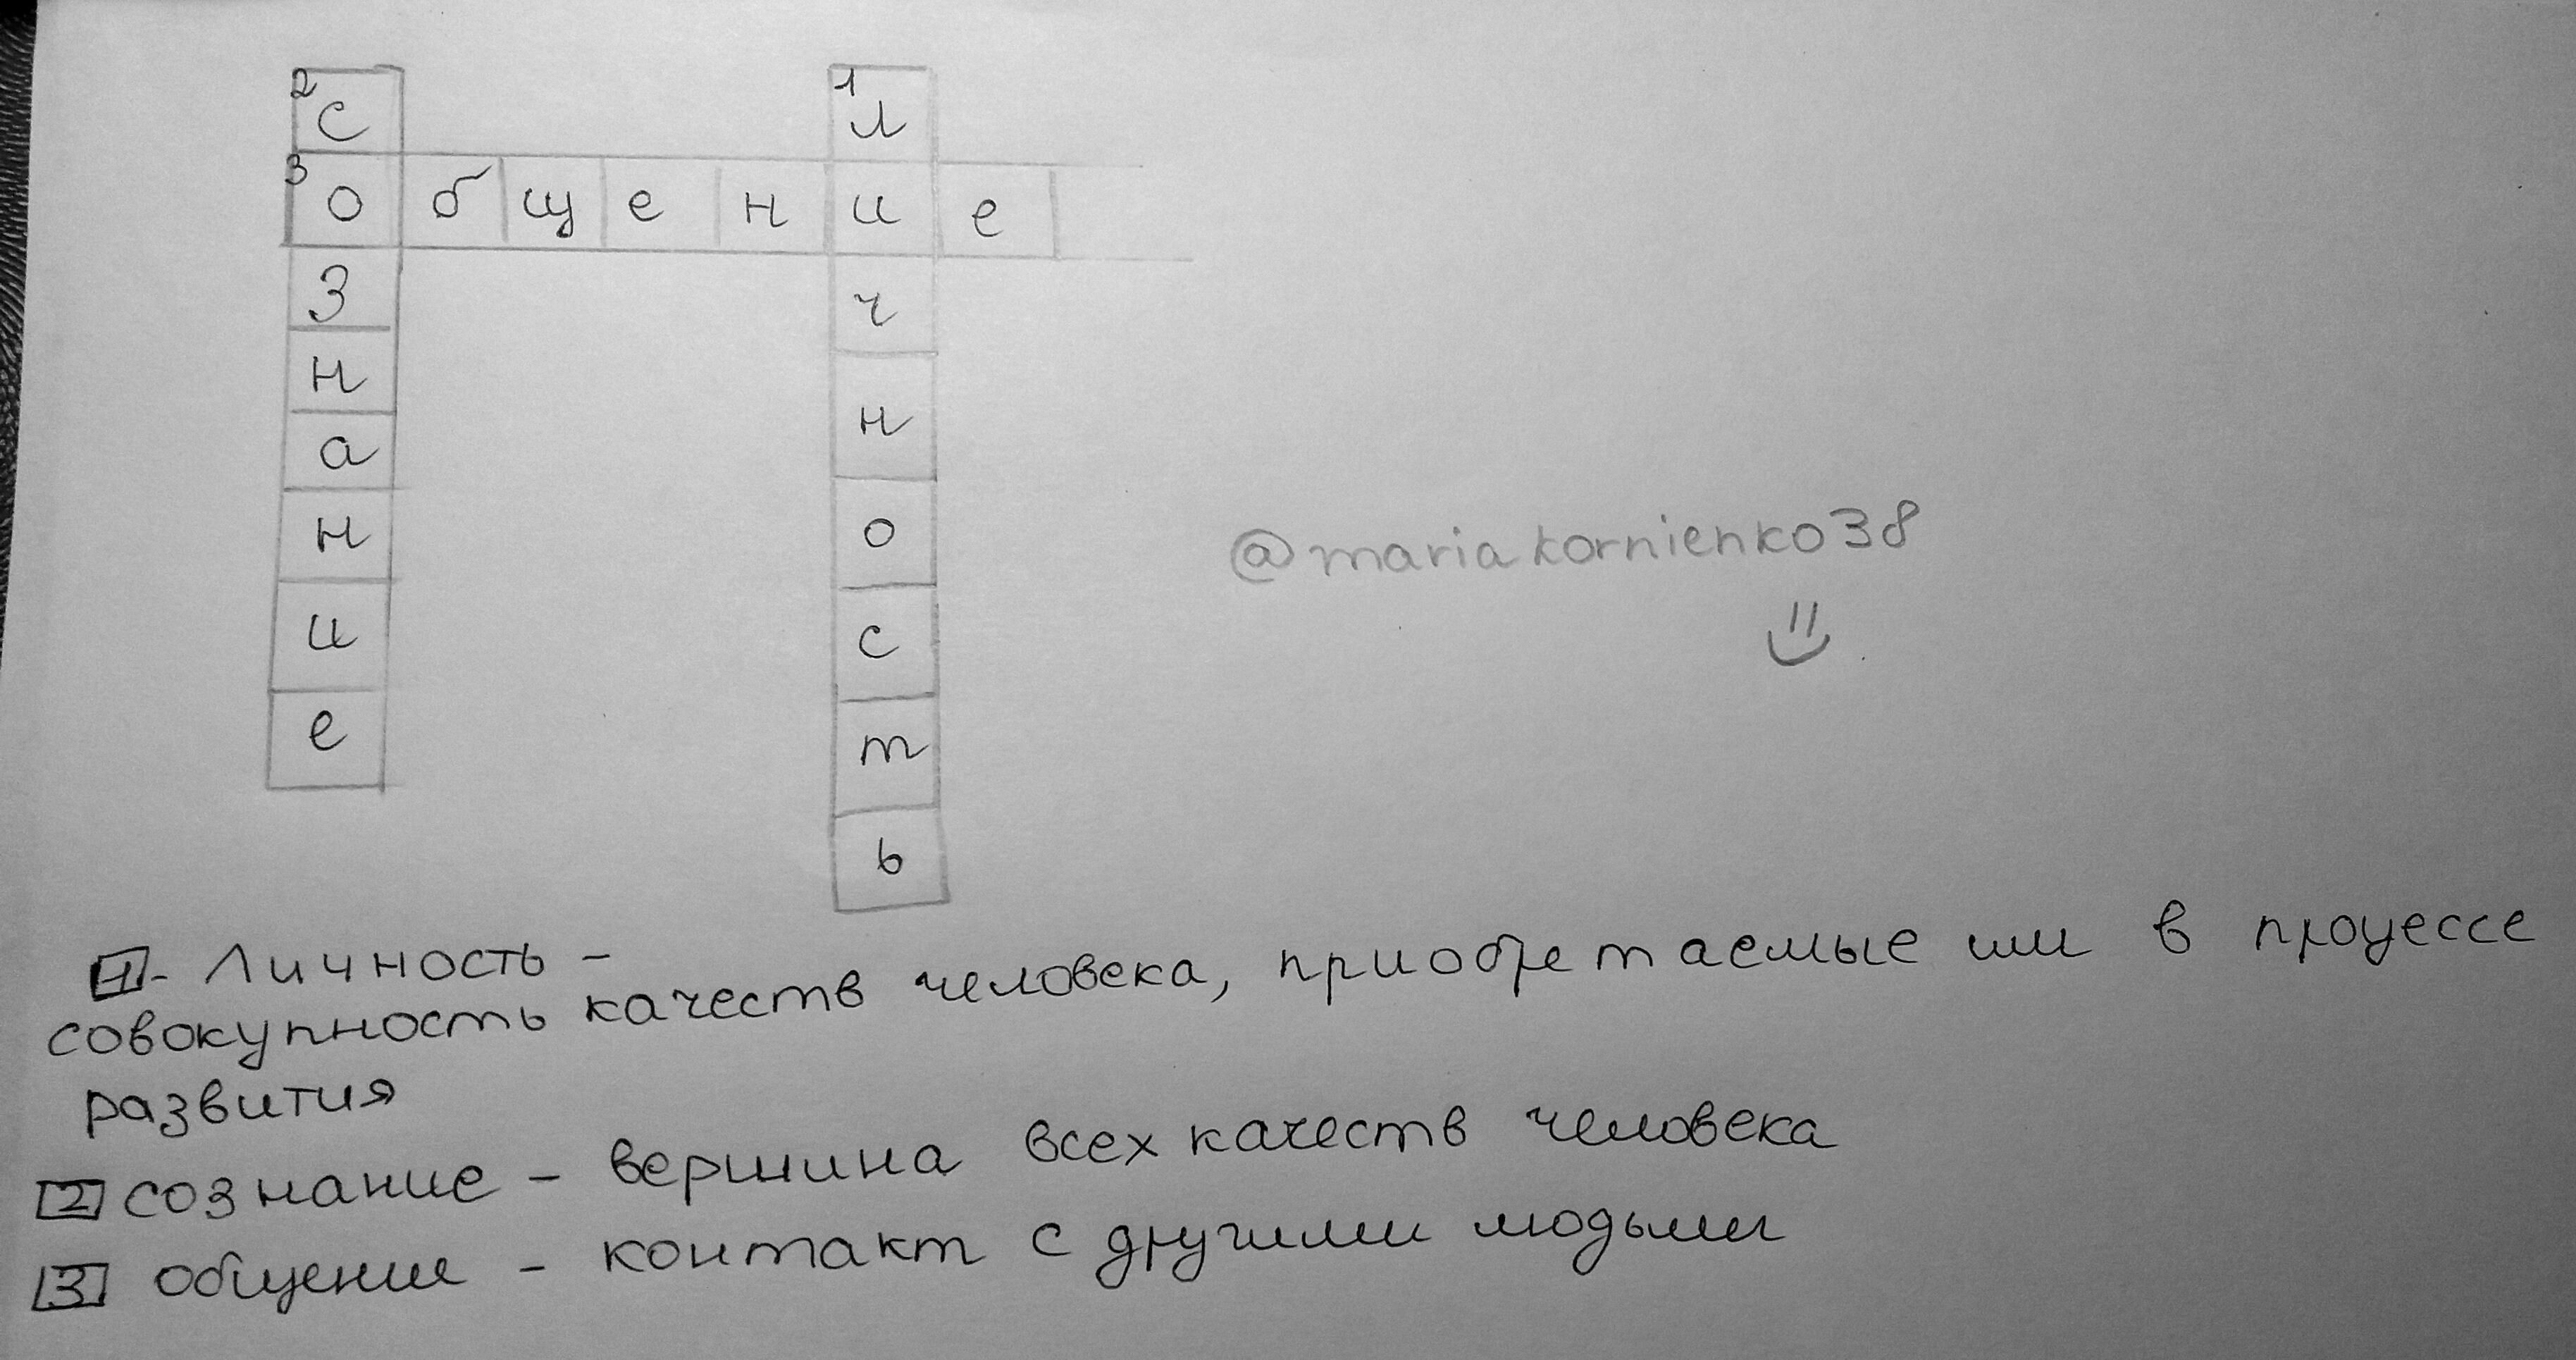 2 с 1 л
3 о б щ е н и е
з ч
н н
а о
н с
и т
е ь
@mariakornienko38
1 - Личность -
совокупность качеств человека, приобретаемые им в процессе
развития
2 сознание - вершина всех качеств человека
3 общение - контакт с другими людьми